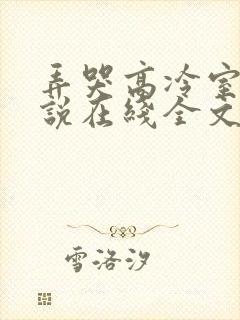 弄哭高冷室
说在线全文
雪洛汐